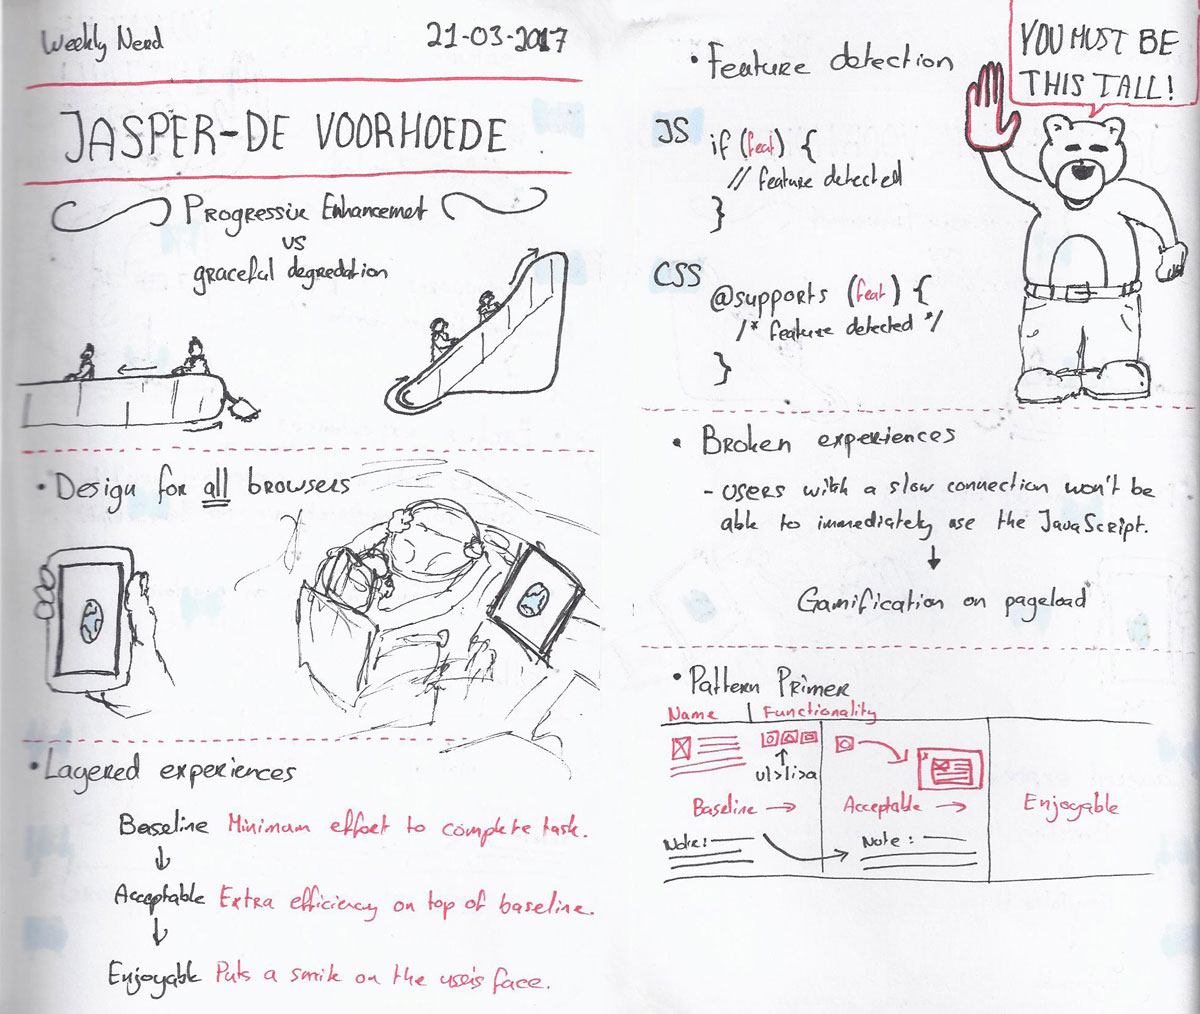 Weekly Nerd
21-03-2017
JASPER-DE VOORHOEDE
Progressive Enhancemet
vs
graceful degredation
• Design for all browsers
• Layered experiences
Baseline Minimum effort to complete task.
Acceptable Extra efficiency on top of baseline.
Enjoyable Puts a smile on the user's face.
• Feature detection
YOU MUST BE
THIS TALL!
JS
if (feat) {
// feature detected
}
CSS
@supports (feat) {
/* feature detected */
}
• Broken experiences
- users with a slow connection won't be
able to immediately use the JavaScript.
Gamification on pageload
• Pattern Primer
Name | Functionality
ul>li>a
Baseline → Acceptable → Enjoyable
Note: Note: